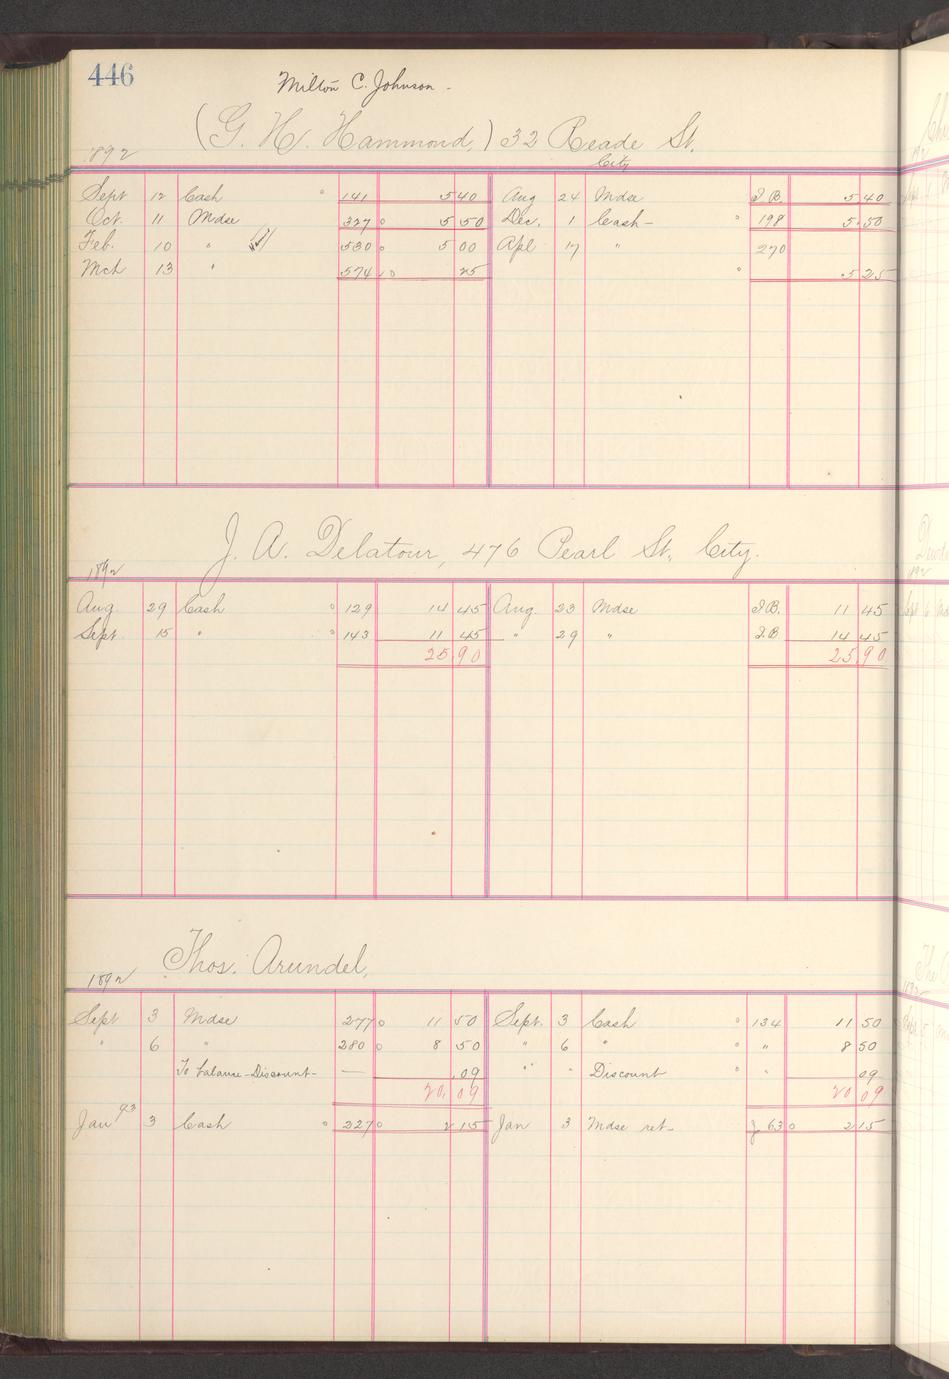 446
Milton C. Johnson -
(G. H. Hammond,) 32 Reade St.
City
1892
Sept 12 Cash 141 5 40 Aug 24 Mdse I.B. 5 40
Oct. 11 Mdse 327 5 50 Dec. 1 Cash - 198 5.50
Feb. 10 " 530 5 00 Apl 17 " 270
Mch 13 " 574 25 5 25
J. A. Delatour, 476 Pearl St. City.
1892
Aug 29 Cash 129 14 45 Aug. 23 Mdse I.B. 11 45
Sept. 15 " 143 11 45 " 29 " I.B 14 45
25.90 25.90
Thos. Arundel,
1892
Sept 3 Mdse 277 11 50 Sept. 3 Cash 134 11 50
" 6 " 280 8 50 " 6 " " 8 50
To balance - Discount - — .09 " " Discount " 09
20.09 20 09
Jan 93 3 Cash 227 2 15 Jan 3 Mdse ret - J 63 2 15